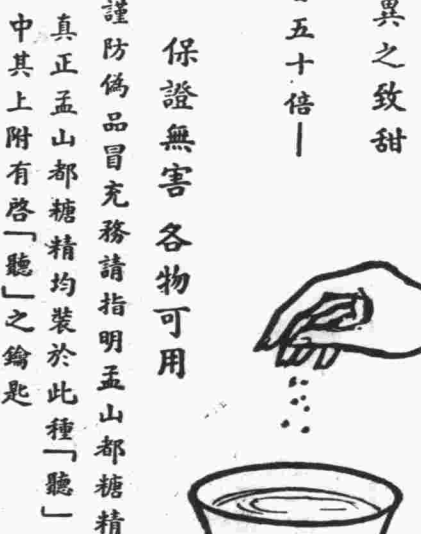 異之致甜
五十倍—
保證無害 各物可用
謹防偽品冒充務請指明孟山都糖精
真正孟山都糖精均裝於此種「聽」
中其上附有啓「聽」之鑰匙